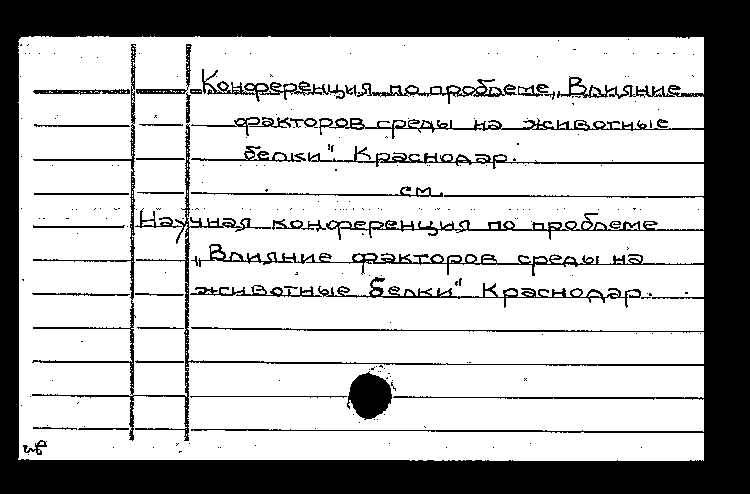 Конференция по проблеме „Влияние
факторов среды на животные
белки". Краснодар.
см.
Научная конференция по проблеме
„Влияние факторов среды на
животные белки" Краснодар.